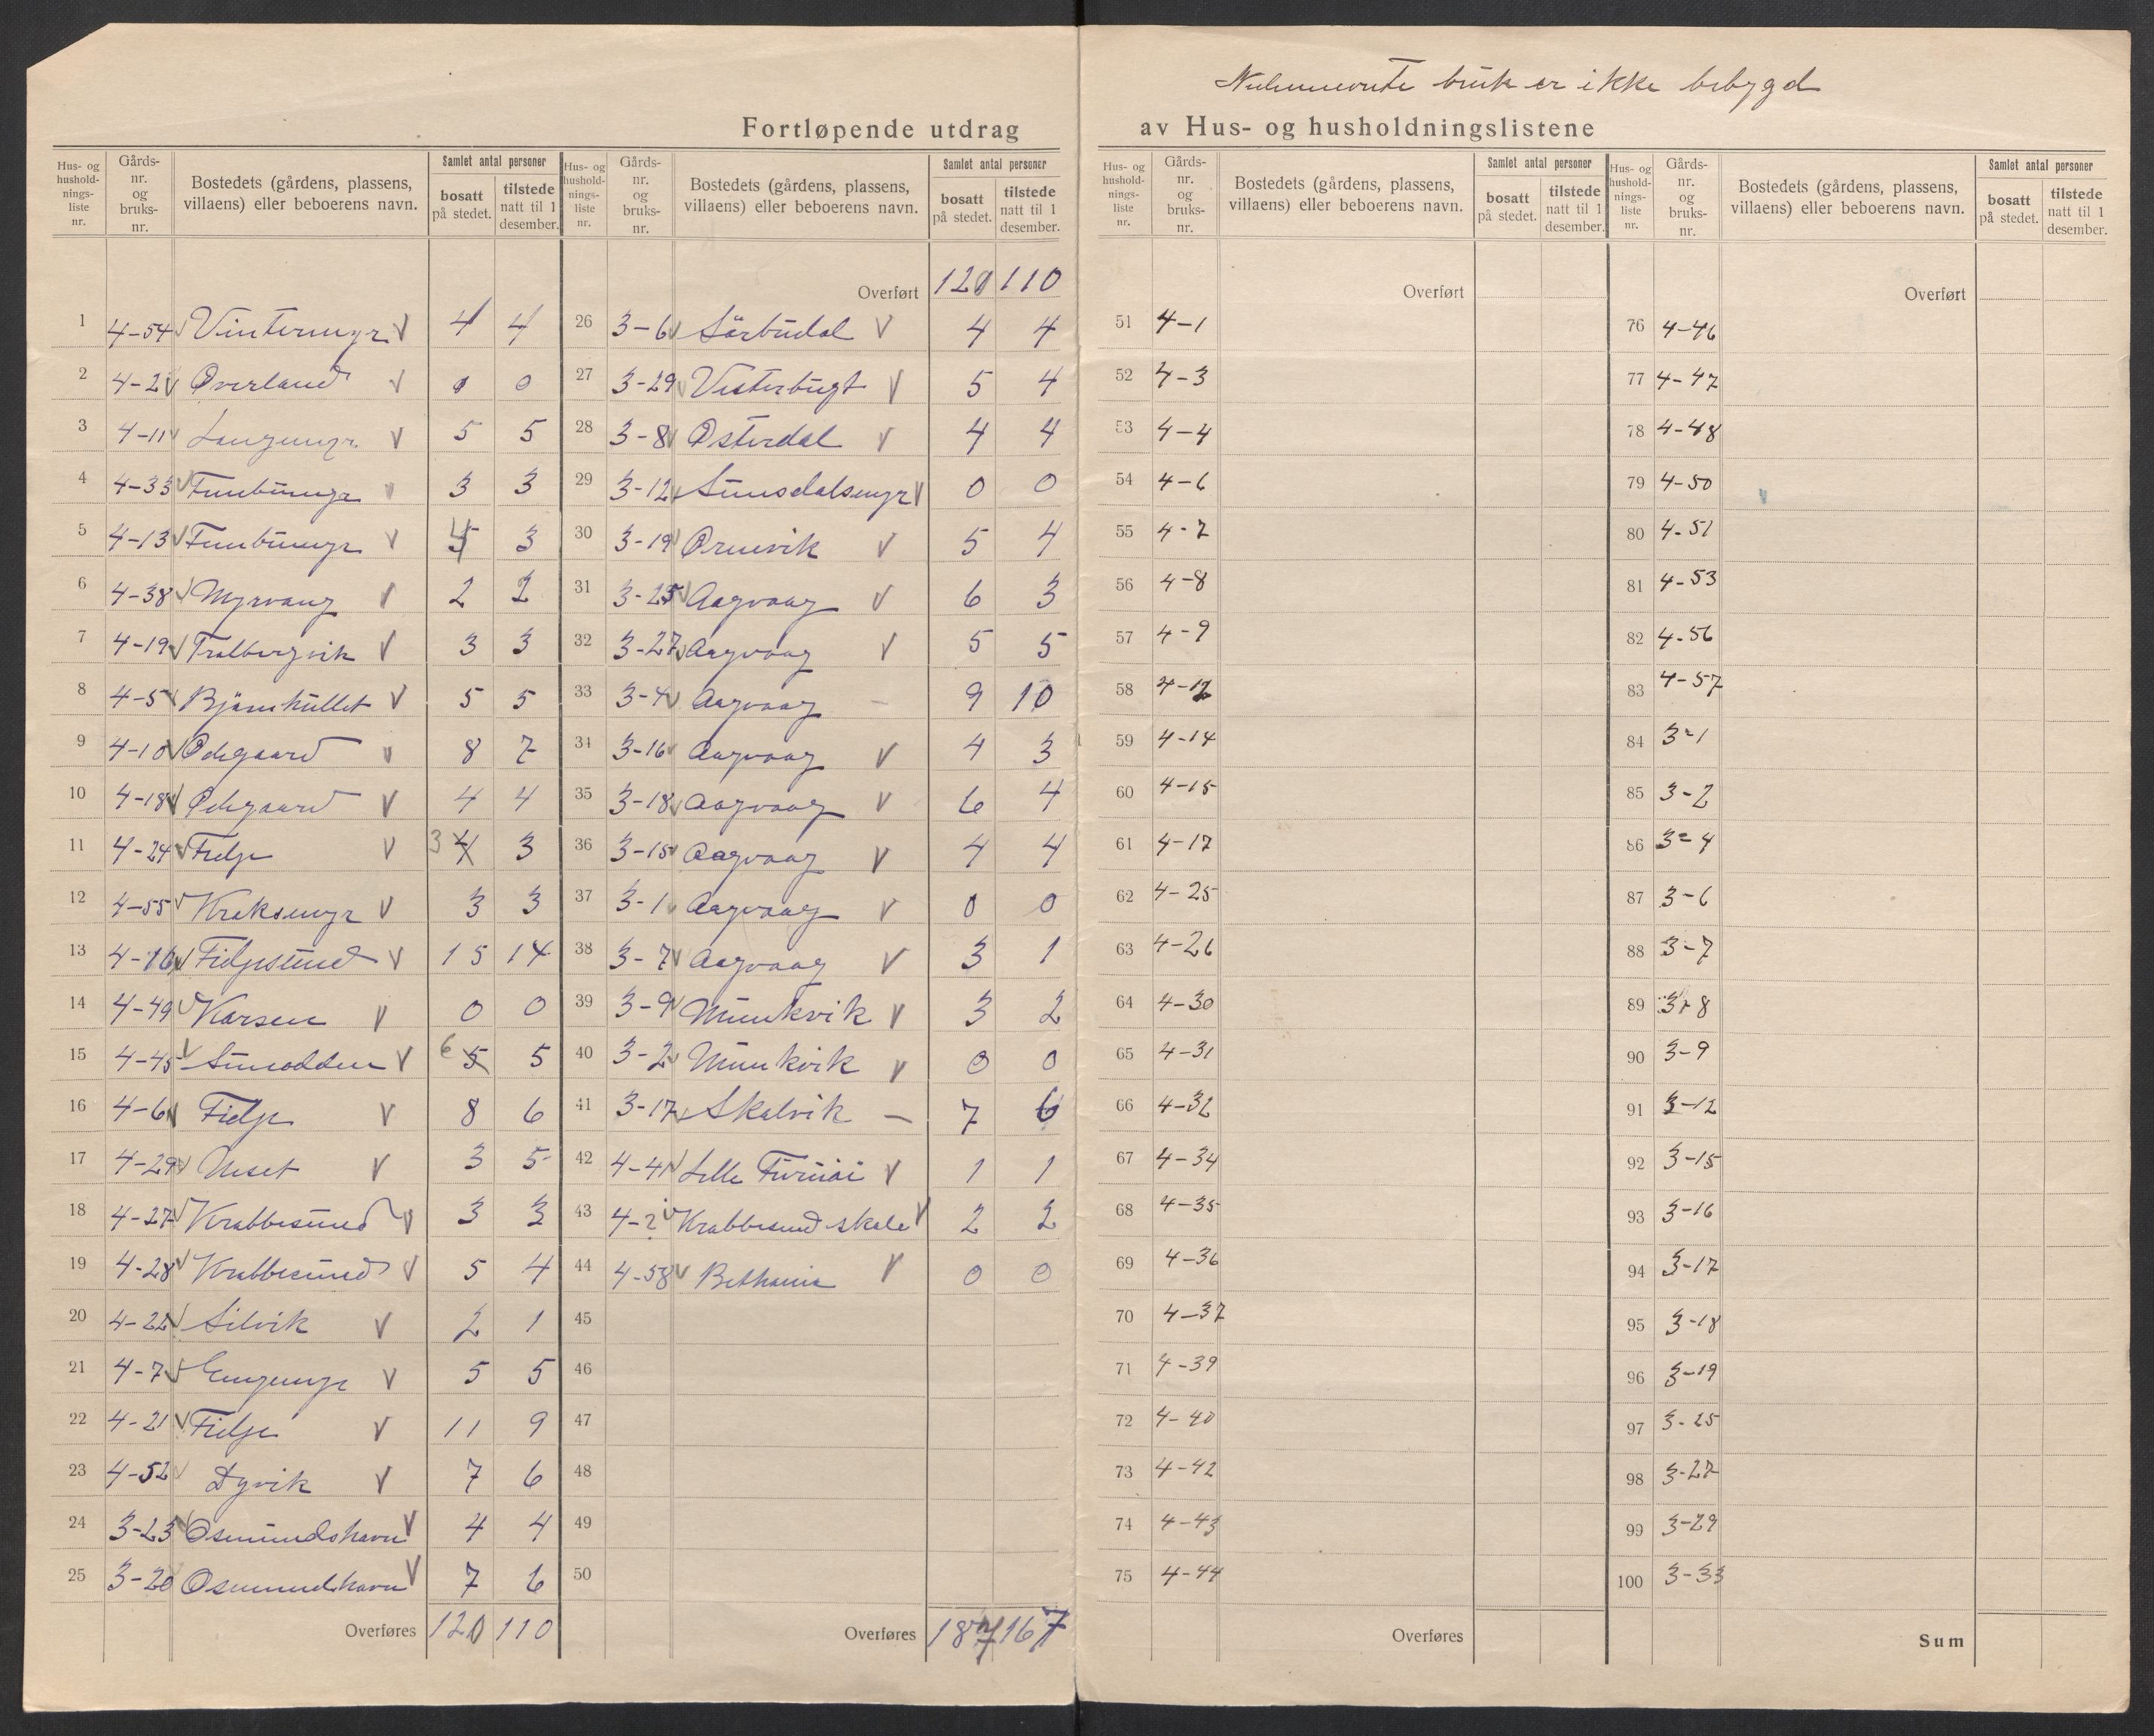 Nedennevnte bruk er ikke bebygd
Fortløpende utdrag av Hus- og husholdningslistene
Hus- og husholdningsliste nr. | Gårds-nr. og bruks-nr. | Bostedets (gårdens, plassens, villaens) eller beboerens navn. | Samlet antal personer | bosatt på stedet. | tilstede natt til 1 desember.
1 4-54 Vintermyr 4 4
2 4-2 Øverland 0 0
3 4-11 Langemyr 5 5
4 4-33 3 3
5 4-13 4 3
6 4-38 Myrvang 2 2
7 4-19 Trolbergvik 3 3
8 4-5 Bjørnhullet 5 5
9 4-10 Ødegaard 8 7
10 4-18 Ødegaard 4 4
11 4-24 Fidje 3 4 3
12 4-55 Kraksmyr 3 3
13 4-16 Fidjesund 15 14
14 4-49 Karsen 0 0
15 4-45 Simodden 6 5 5
16 4-6 Fidje 8 6
17 4-29 Neset 3 5
18 4-27 Krabbesund 3 3
19 4-28 Krabbesund 5 4
20 4-22 Silvik 2 1
21 4-7 Engemyr 5 5
22 4-21 Fidje 11 9
23 4-52 Dyvik 7 6
24 3-23 Osmundshavn 4 4
25 3-20 Osmundshavn 7 6
Overføres 120 110
Hus- og husholdningsliste nr. | Gårds-nr. og bruks-nr. | Bostedets (gårdens, plassens, villaens) eller beboerens navn. | Samlet antal personer | bosatt på stedet. | tilstede natt til 1 desember.
Overført 120 110
26 3-6 Sörbudal 4 4
27 3-29 Vesterbugt 5 4
28 3-8 Østerdal 4 4
29 3-12 Simsdalsmyr 0 0
30 3-19 Ørnevik 5 4
31 3-25 Aagvaag 6 3
32 3-27 Aagvaag 5 5
33 3-4 Aagvaag 9 10
34 3-16 Aagvaag 4 3
35 3-18 Aagvaag 6 4
36 3-15 Aagvaag 4 4
37 3-1 Aagvaag 0 0
38 3-7 Aagvaag 3 1
39 3-9 Munkvik 3 2
40 3-2 Munkvik 0 0
41 3-17 Skalvik 7 6
42 4-41 Lille Furuøi 1 1
43 4-? Krabbesundskale 2 2
44 4-58 Bethania 0 0
45
46
47
48
49
50
Overføres 187 167
Hus- og husholdningsliste nr. | Gårds-nr. og bruks-nr. | Bostedets (gårdens, plassens, villaens) eller beboerens navn. | Samlet antal personer | bosatt på stedet. | tilstede natt til 1 desember.
Overført
51 4-1
52 4-3
53 4-4
54 4-6
55 4-7
56 4-8
57 4-9
58 4-12
59 4-14
60 4-15
61 4-17
62 4-25
63 4-26
64 4-30
65 4-31
66 4-32
67 4-34
68 4-35
69 4-36
70 4-37
71 4-39
72 4-40
73 4-42
74 4-43
75 4-44
Overføres
Hus- og husholdningsliste nr. | Gårds-nr. og bruks-nr. | Bostedets (gårdens, plassens, villaens) eller beboerens navn. | Samlet antal personer | bosatt på stedet. | tilstede natt til 1 desember.
Overført
76 4-46
77 4-47
78 4-48
79 4-50
80 4-51
81 4-53
82 4-56
83 4-57
84 3-1
85 3-2
86 3-4
87 3-6
88 3-7
89 3-8
90 3-9
91 3-12
92 3-15
93 3-16
94 3-17
95 3-18
96 3-19
97 3-25
98 3-27
99 3-29
100 3-33
Sum